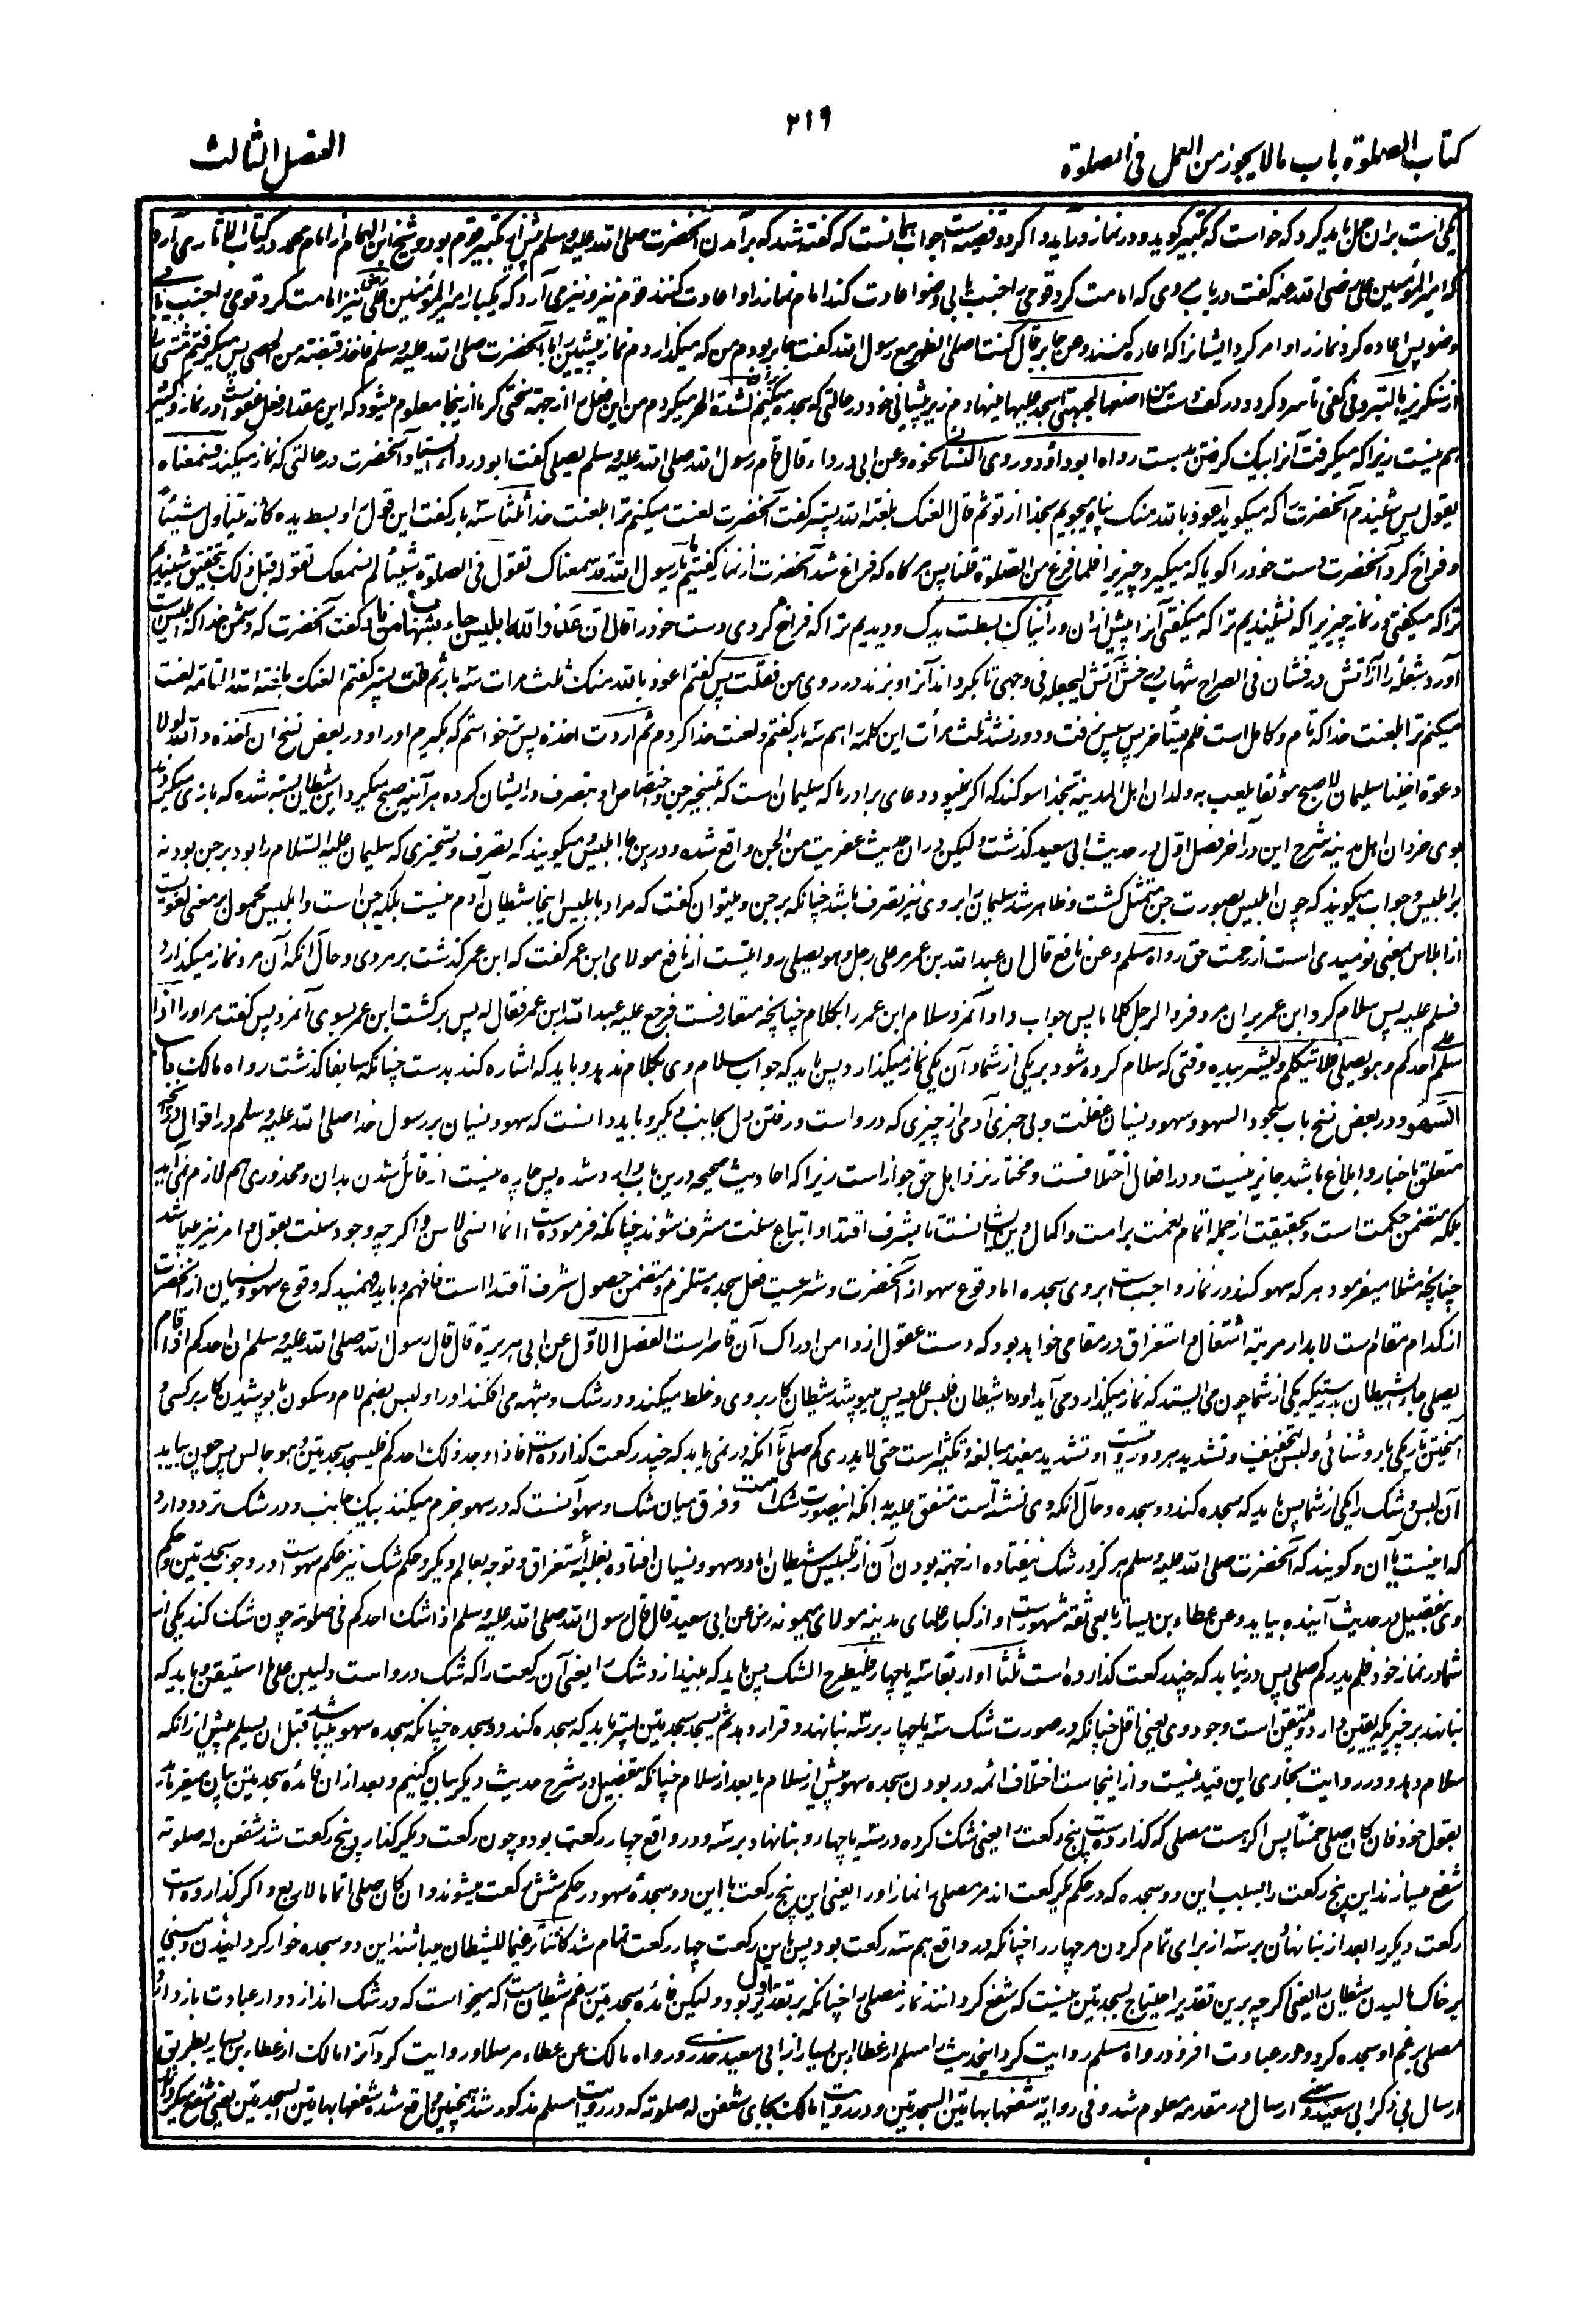 ۲۱۹
كتاب الصلوة باب مالا يجوز من العمل فی الصلوة
الفصل الثالث
يكی است بران حمل بايد كرد كه خواست كه تكبير گويد و در نماز درآيد و اگر دو قضيه است جواب همانست كه گفته شد كه برآمدن آنحضرت صلی الله عليه وسلم پيش از تكبير قوم بود و شيخ ابن الهمام از امام محمد در كتاب الآثار می آرد
كه اميرالمؤمنين علی رضی الله عنه گفت در باب مردی كه امامت كرد قومی را جنب يا بی وضو اعادت كند امام نماز را و اعادت كنند قوم نيز و نيز می آرد كه يكبار اميرالمؤمنين علی نيز امامت كرد قومی را جنب يا بی
وضو پس اعاده كرد نماز را و امر كرد ايشانرا كه اعاده كنند وعن جابر قال كنت اصلی الظهر مع رسول الله گفت جابر بودم من كه ميگذاردم نماز پيشين را با آنحضرت صلی الله عليه وسلم فاخذ قبضة من الحصی پس ميگرفتم مشتی را
از سنگريزه لتبرد فی كفی تا سرد گردد در كف دست من اضعها لجبهتی اسجد عليها مينهادم زير پيشانی خود در حالتی كه سجده ميكنم بران لشدة الحر ميكردم من اين فعل را از جهة سختی گرما ازينجا معلوم ميشود كه اين مقدار فعل عفوست در نماز و كثير
هم نيست زيرا كه ميگرفت آنرا بيك گرفتن بدست رواه ابو داود و روی النسائی نحوه وعن ابی درداء قال قام رسول الله صلی الله عليه وسلم يصلی گفت ابو درداء استاد آنحضرت در حالتی كه نماز ميكند فسمعناه
يقول پس شنيديم آنحضرت را كه ميگويد اعوذ بالله منك پناه ميجويم بخدا از تو ثم قال العنك بلعنة الله پستر گفت آنحضرت لعنت ميكنم ترا بلعنت خدا ثلثا سه بار گفت اين قول را و بسط يده كانه يتناول شيئا
و فراخ كرد آنحضرت دست خود را گويا كه ميگيرد چيزيرا فلما فرغ من الصلوة قلنا پس هرگاه كه فراغ شد آنحضرت از نماز گفتيم ما يا رسول الله قد سمعناك تقول فی الصلوة شيئا لم نسمعك تقوله قبل ذلك بتحقيق شنيديم
ترا كه ميگفتی در نماز چيزيرا كه نشنيديم ترا كه ميگفتی آنرا پيش ازان ورأيناك بسطت يدك و ديديم ترا كه فراخ كردی دست خود را قال ان عدو الله ابليس جاء بشهاب من نار گفت آنحضرت كه دشمن خدا كه ابليس است
آورد شعلۀ را از آتش درفشان فی الصراح شهاب درخش آتش ليجعله فی وجهی تا بگرداند آنرا و بزند در روی من فقلت پس گفتم اعوذ بالله منك ثلث مرات سه بار ثم قلت پستر گفتم العنك بلعنة الله التامة لعنت
ميكنم ترا بلعنت خدا كه تام و كامل است فلم يستأخر پس پس نرفت و دور نشد ثلث مرات اين كلمه را هم سه بار گفتم و لعنت خدا كردم ثم اردت اخذه پستر خواستم كه بگيرم او را و در بعض نسخ ان آخذه والله لولا
دعوة اخينا سليمان لاصبح موثقا يلعب به ولدان اهل المدينة بخدا سوگند كه اگر نميبود دعای برادر ما كه سليمان است كه تسخير جن و اختصاص او بتصرف در ايشان كرده هرآئينه صبح ميكرد اين شيطان بسته شده كه بازی ميكردند
بوی خردان اهل مدينه شرح اين در آخر فصل اول در حديث ابی سعيد گذشت وليكن دران حديث عفريت من الجن واقع شده و درين جا ابليس ميگويند كه تصرف و تسخيری كه سليمان عليه السلام را بود بر جن بود نه
بر ابليس و جواب ميگويند كه چون ابليس بصورت جن متمثل گشت و ظاهر شد سليمان را بر وی نيز تصرف باشد چنانكه بر جن و ميتوان گفت كه مراد بابليس اينجا شيطان آدم نيست بلكه جن است و ابليس محمول بر معنی لغويست
از ابلاس بمعنی نوميدی است از رحمت حق رواه مسلم وعن نافع قال ان عبد الله بن عمر مر علی رجل وهو يصلی روايتست از نافع مولای ابن عمر گفت كه ابن عمر گذشت بر مردی و حال آنكه آن مرد نماز ميگذارد
فسلم عليه پس سلام كرد ابن عمر بران مرد فرد الرجل كلاما پس جواب داد آنمرد سلام ابن عمر را بكلام چنانچه متعارفست فرجع عليه عبد الله ابن عمر فقال له پس برگشت ابن عمر بسوی آنمرد پس گفت مر او را اذا
سلم علی احدكم وهو يصلی فلا يتكلم وليشر بيده وقتی كه سلام كرده شود بر يكی از شما و آن يكی نماز ميگذارد پس بايد كه جواب سلام وی بكلام ندهد و بايد كه اشاره كند بدست چنانكه سابقا گذشت رواه مالك باب
السهو و در بعض نسخ باب سجود السهو و سهو و نسيان غفلت و بی خبری آدمی از چيزی كه در و است و رفتن دل بجانب ديگر و بايد دانست كه سهو و نسيان بر رسول خدا صلی الله عليه وسلم در اقوال و آنچه
متعلق باخبار و ابلاغ باشد جايز نيست و در افعال اختلافست و مختار نزد اهل حق جواز است زيرا كه احاديث صحيحه درين باب وارد شده پس چاره نيست از قائل شدن بدان و محذوری هم لازم نمی آيد
بلكه متضمن حكمت است و بحقيقت از جمله اتمام نعمت بر امت و اكمال دين ايشانست تا بشرف اقتدا و اتباع سنت مشرف شوند چنانكه فرموده است انما انسی لاسن و اگرچه وجود سنت بقول و امر نيز ميباشد
چنانچه مثلا ميفرمود هر كه سهو كند در نماز واجب است بر وی سجده اما وقوع سهو از آنحضرت و شرعيت فعل سجده مستلزم و متضمن حصول شرف اقتدا است فافهم و بايد فهميد كه وقوع سهو و نسيان از آنحضرت
از كدام مقام است لابد از مرتبه اشتغال و استغراق در مقامی خواهد بود كه دست عقول از دامن ادراك آن قاصر است الفصل الاول عن ابی هريرة قال قال رسول الله صلی الله عليه وسلم ان احدكم اذا قام
يصلی جاءه الشيطان بدرستيكه يكی از شما چون می ايستد كه نماز ميگذارد می آيد او را شيطان فلبس عليه پس ميپوشد شيطان كار بر وی و خلط ميكند و در شك و شبهه می افكند او را و لبس بضم لام و سكون با پوشيدن كار بر كسی و
آميختن تاريكی با روشنائی و لبس بتخفيف و تشديد هر دو رويست و تشديد مفيد مبالغه و تكثير است حتی لا يدری كم صلی تا آنكه در نمی يابد كه چند ركعت گذارده است فاذا وجد ذلك احدكم فليسجد سجدتين وهو جالس پس چون بيابد
آن لبس و شك را يكی از شما پس بايد كه سجده كند دو سجده و حال آنكه وی نشسته است متفق عليه بدانكه اينصورت شك است و فرق ميان شك و سهو آنست كه در سهو جزم ميكند بيك جانب و در شك تردد دارد
كه اينست يا آن و گويند كه آنحضرت صلی الله عليه وسلم هرگز در شك نيفتاده از جهته بودن آن از تلبيس شيطان اما در سهو و نسيان افتاده بغلبۀ استغراق و توجه بعالم ديگر و حكم شك نيز حكم سهوست در وجوب سجدتين و حكم
وی بتفصيل در حديث آينده بيايد وعن عطاء بن يسار تابعی ثقه مشهورست و از كبار علمای مدينه مولای ميمونه رض عن ابی سعيد قال قال رسول الله صلی الله عليه وسلم اذا شك احدكم فی صلوته چون شك كند يكی از
شما در نماز خود فلم يدر كم صلی پس در نيابد كه چند ركعت گذارده است ثلثا او اربعا سه يا چهار فليطرح الشك پس بايد كه بيندازد شك را يعنی آن ركعت را كه شك در و است وليبن علی ما استيقن و بايد كه
بنا نهد بر چيزيكه يقين دارد و متيقن است وجود وی يعنی اقل چنانكه در صورت شك سه يا چهار بر سه بنا نهد و قرار دهد ثم يسجد سجدتين پستر بايد كه سجده كند دو سجده چنانكه سجده سهو ميباشد قبل ان يسلم پيش ازانكه
سلام دهد و در روايت بخاری اين قيد نيست و از اينجاست اختلاف ائمه در بودن سجده سهو پيش از سلام يا بعد از سلام چنانكه بتفصيل در شرح حديث ديگر بيان كنيم و بعد ازان فائده سجدتين بيان ميفرمايد
بقول خود فان كان صلی خمسا پس اگر هست مصلی كه گذارده است پنج ركعت را يعنی شك كرده در سه يا چهار و بنا نهاد بر سه و در واقع چهار ركعت بود و چون ركعت ديگر گذارد پنج ركعت شد شفعن له صلوته
شفع ميسازند اين پنج ركعت را بسبب اين دو سجده كه در حكم يكركعت اند مر مصلی را نماز او را يعنی اين پنج ركعت با اين دو سجدۀ سهو در حكم شش ركعت ميشوند وان كان صلی اتماما لاربع و اگر گذارده است
ركعت ديگر را بعد از بنا نهادن بر سه از برای تمام كردن مر چهار را چنانكه در واقع هم سه ركعت بود پس باين ركعت چهار ركعت تمام شد كانتا ترغيما للشيطان ميباشند اين دو سجده خوار كردانيدن و بينی
بر خاك ماليدن شيطان را يعنی اگرچه برين تقدير احتياج بسجدتين نيست كه شفع گردانند نماز مصلی را چنانكه بر تقدير اول بود وليكن فائده سجدتين رغم شيطان است كه ميخواست كه در شك اندازد و از عبادت باز دارد
مصلی برغم او سجده كرد و در عبادت افزود رواه مسلم روايت كرد اينحديث را مسلم از عطاء بن يسار از ابی سعيد خدری و رواه مالك عن عطاء مرسلا و روايت كرد آنرا مالك از عطاء بن يسار بطريق
ارسال بی ذكر ابی سعيد و معنی ارسال در مقدمه معلوم شد و فی رواية شفعها بهاتين السجدتين و در روايت مالك بجای شفعن له صلوته كه در روايت مسلم مذكور شد همچنين واقع شده شفعها بهاتين السجدتين يعنی شفع ميگرداند